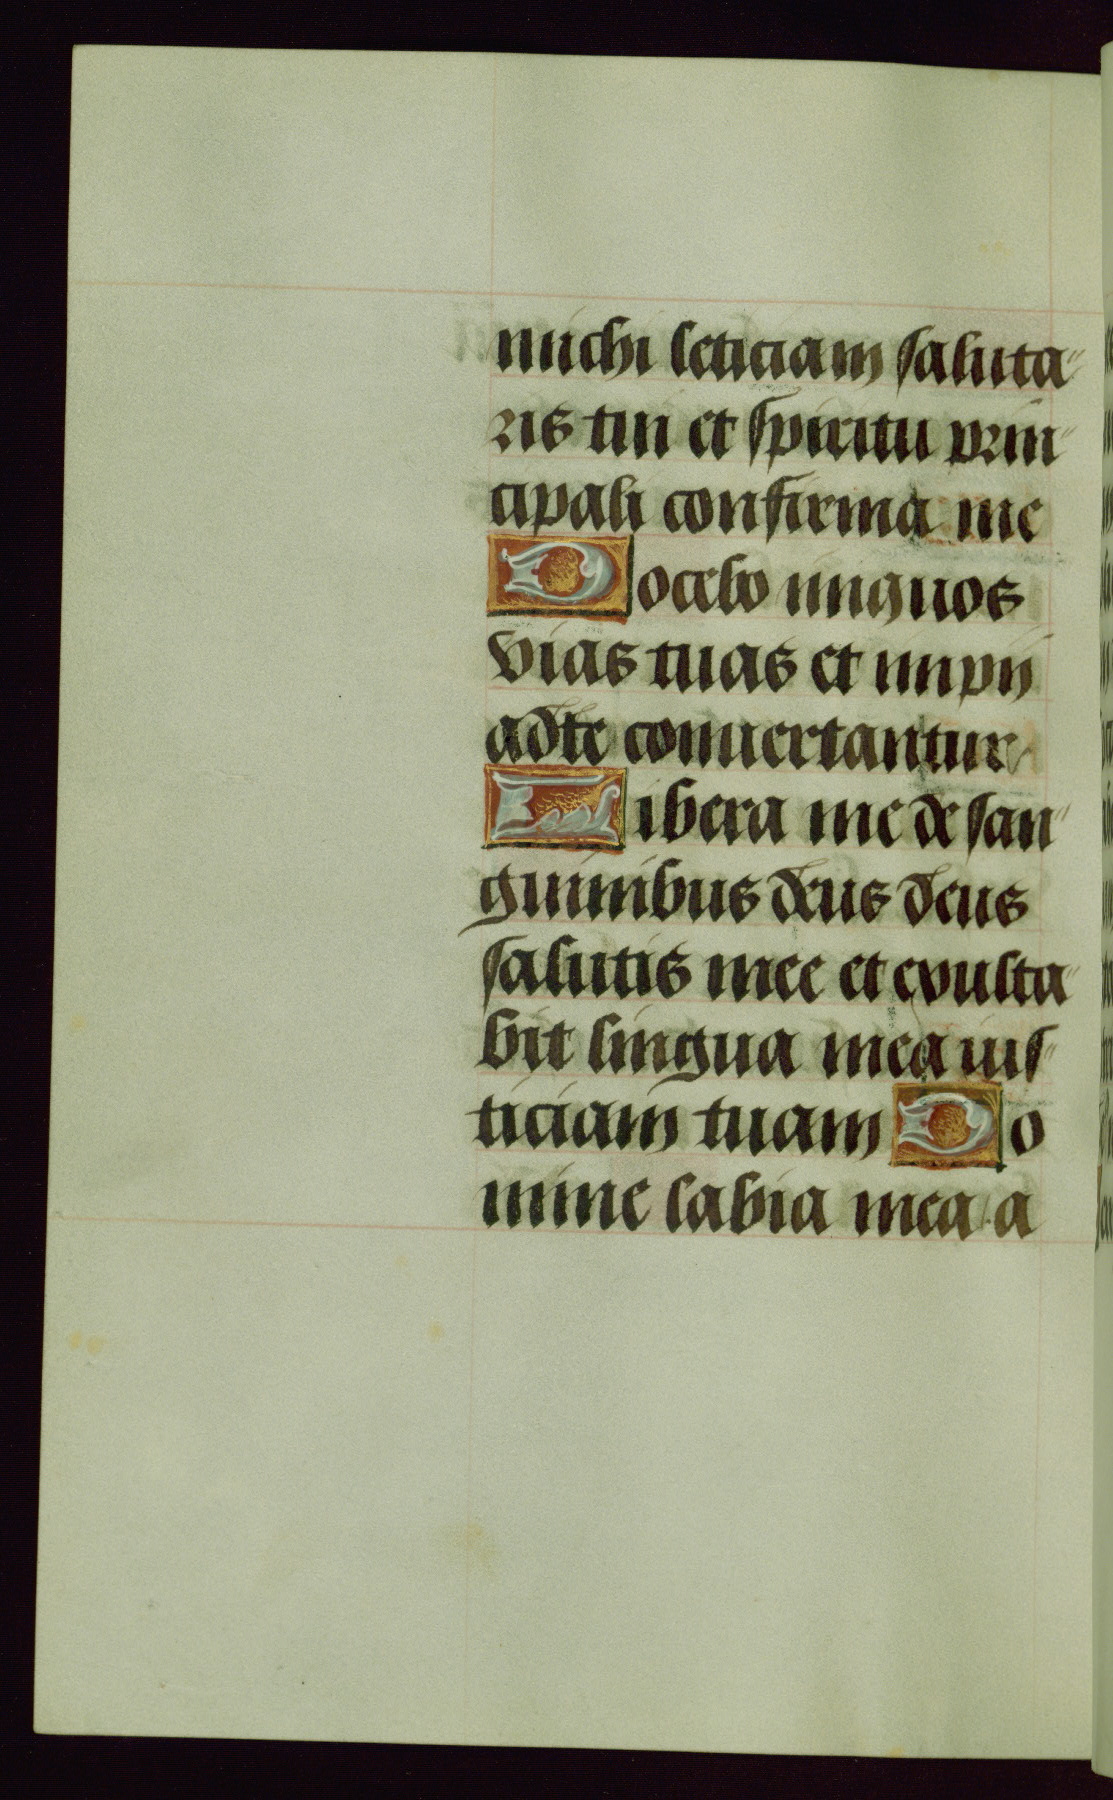 michi leticiam saluta-
ris tui et spiritu prin-
cipali confirma me
Docebo iniquos
vias tuas et impii
ad te convertantur
Libera me de san-
guinibus deus deus
salutis mee et exulta-
bit lingua mea ius-
ticiam tuam Do
mine labia mea a